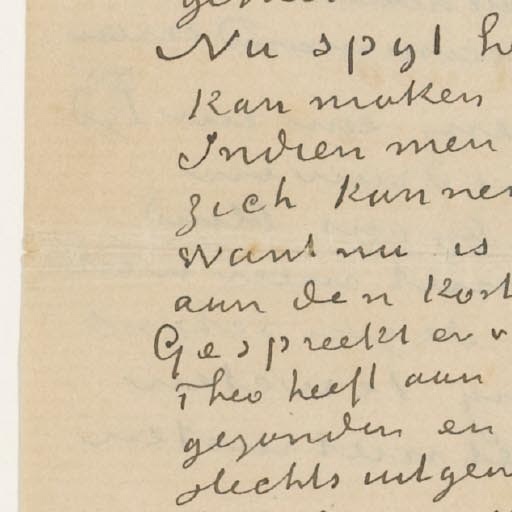 Nu spyt h
kan maken
Indien men
zich kunnen
want nu is
aan den kost
Ge spreekt er v
Theo heeft aan
gezonden en
slechts uitgew